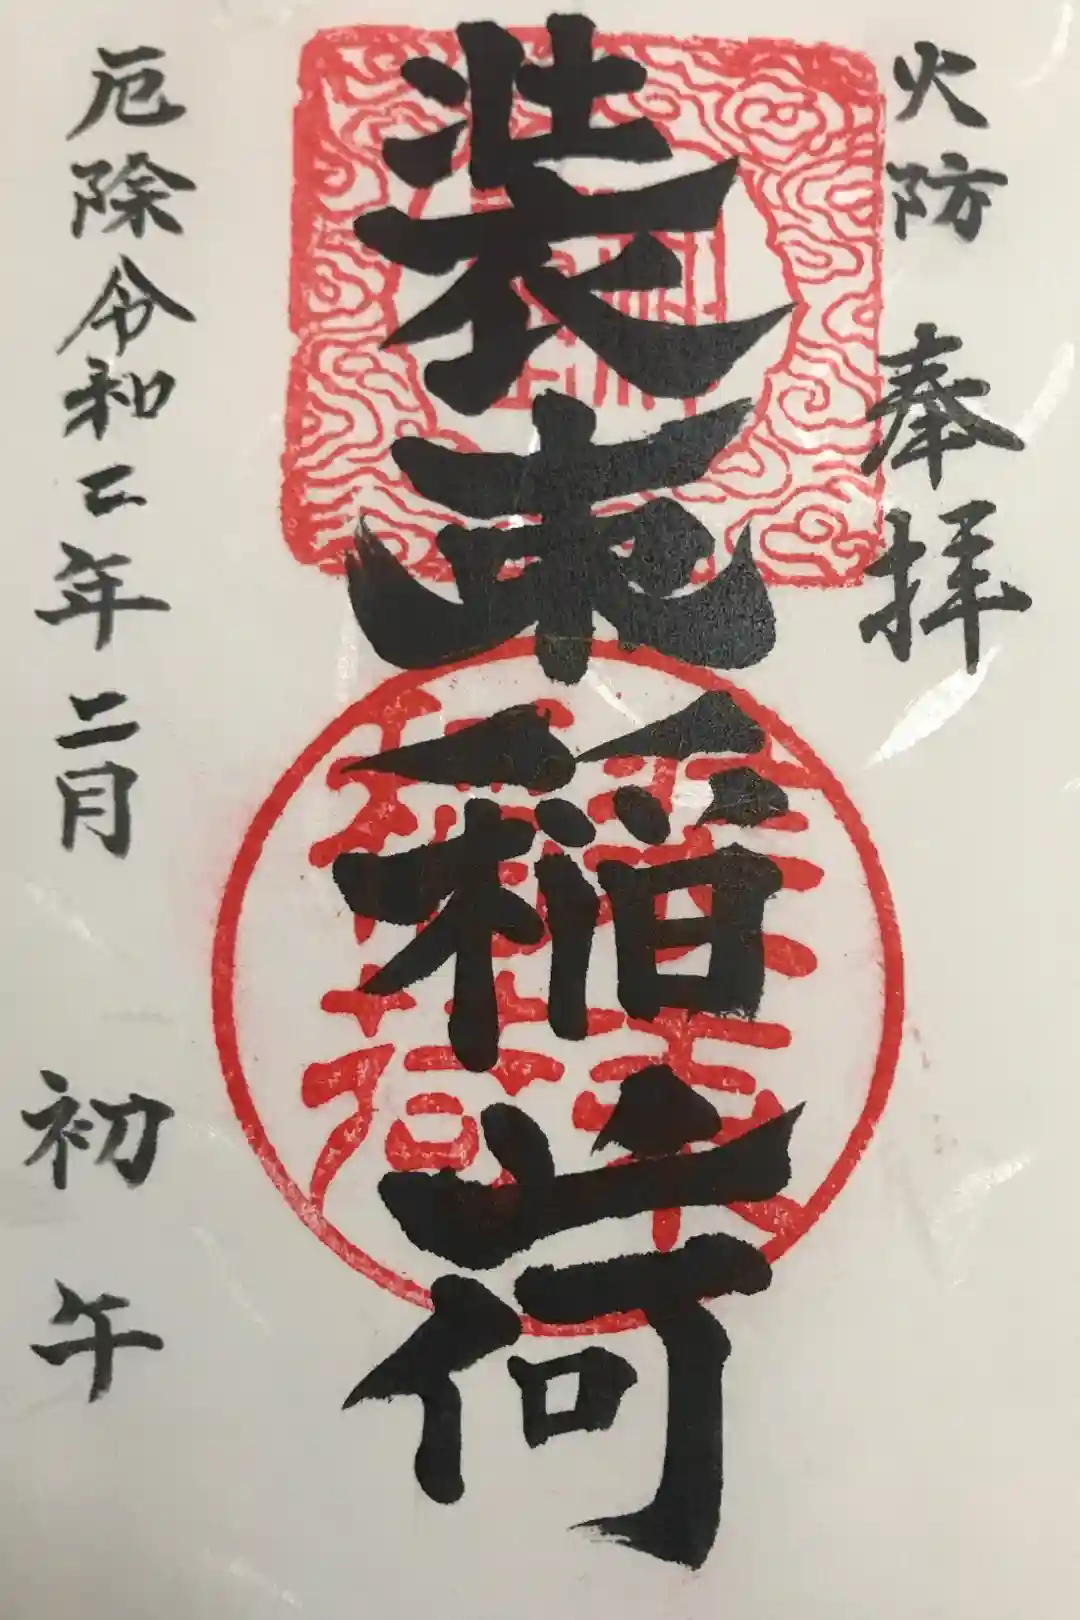 火防 奉拝
装束稲荷
厄除 令和二年二月 初午